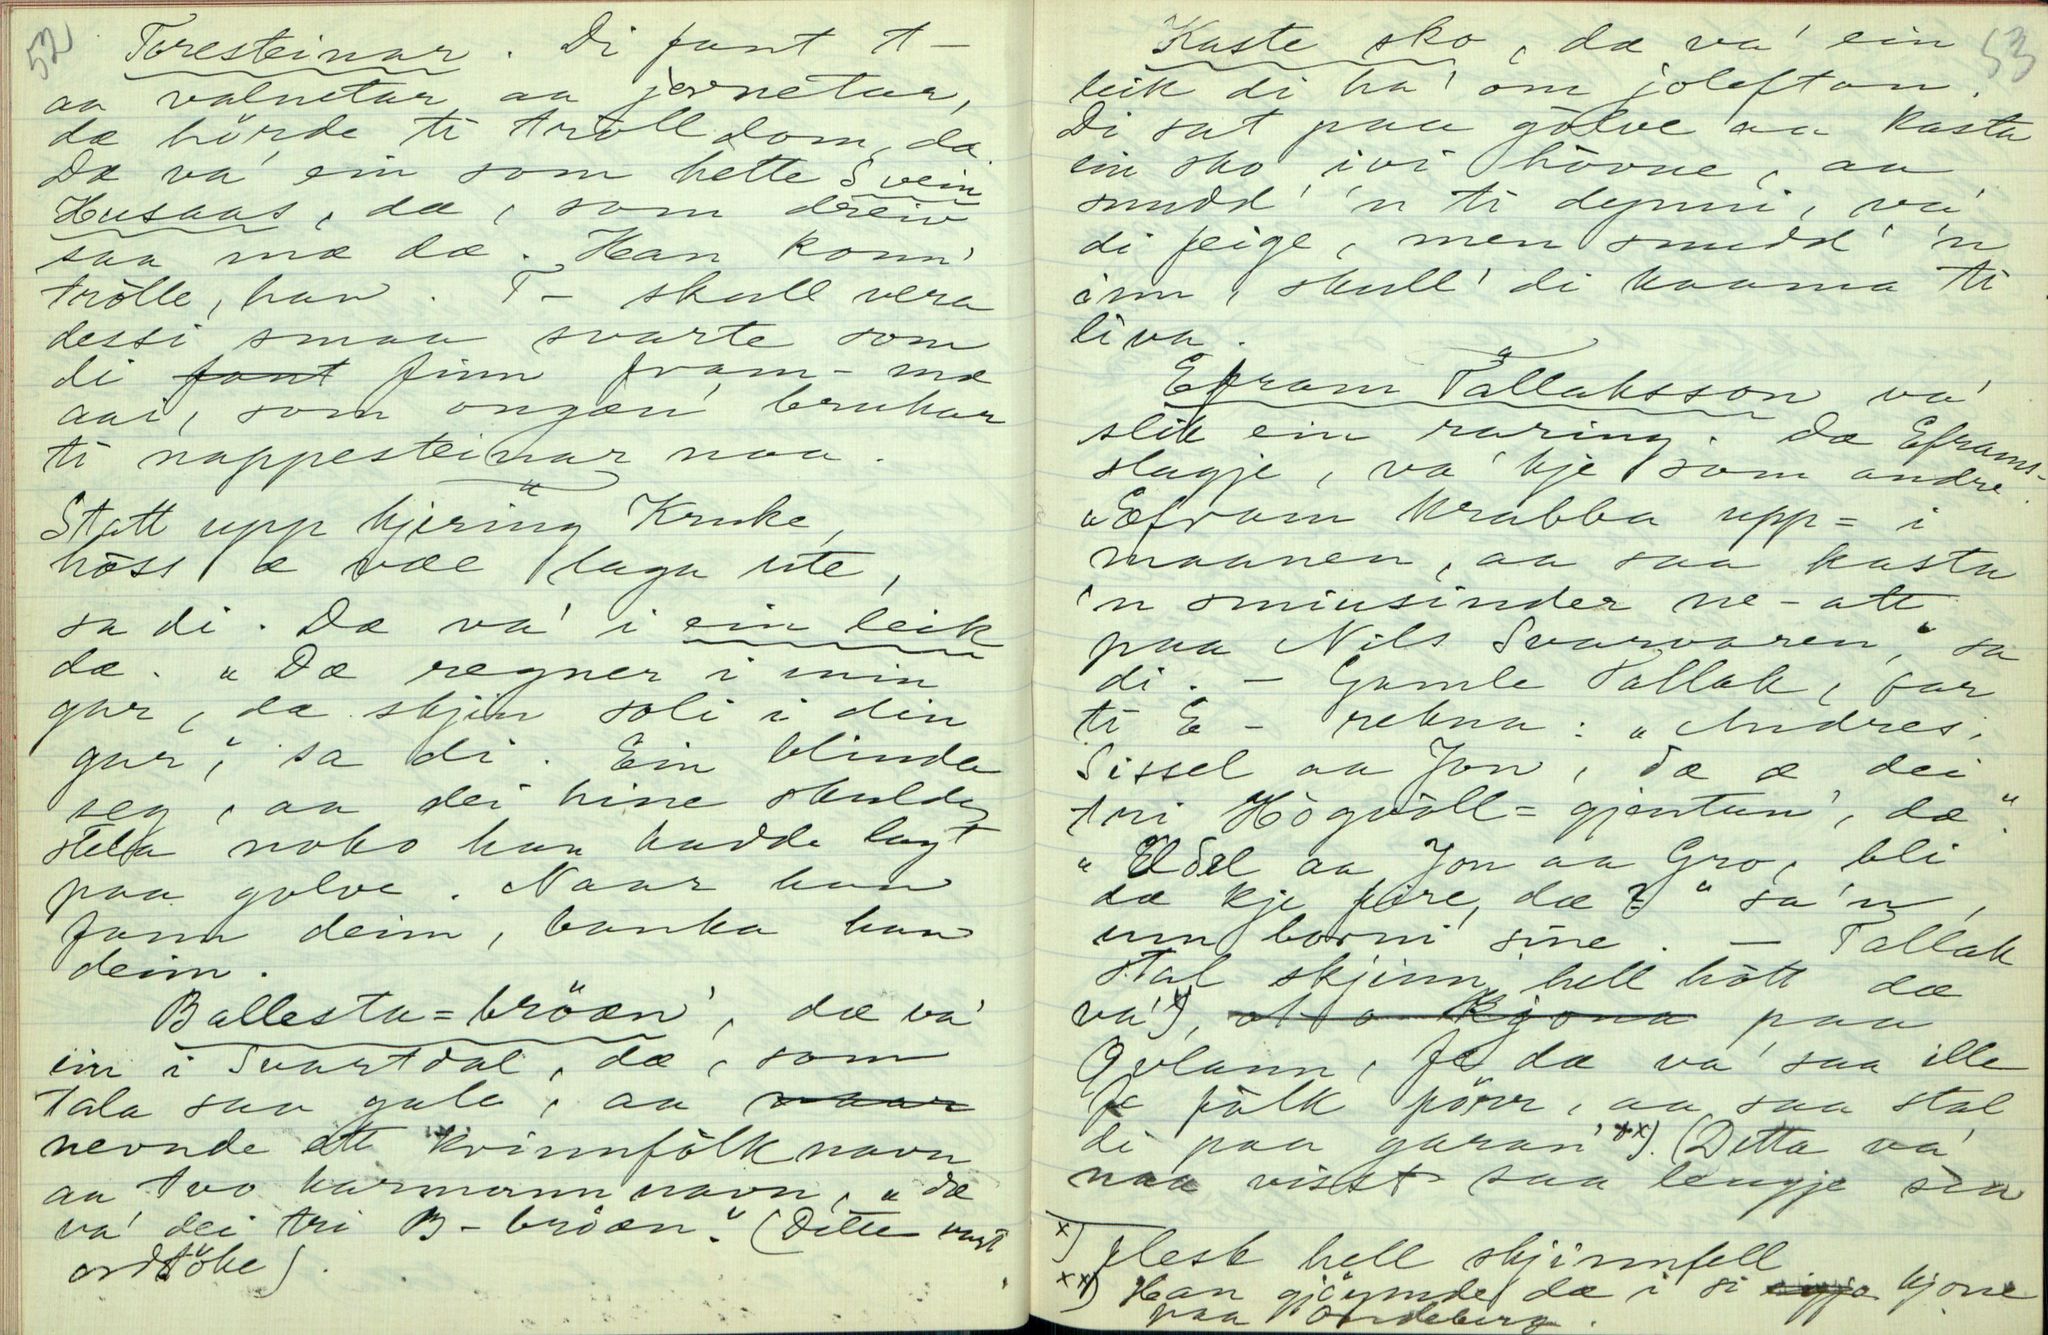 52
Toresteinar. Di fant t-
aa valnetar aa jovnetar,
dæ hörde ti trolldom, dæ.
Dæ va' ein som hette Svein
Husaas, dæ, som dreiv
saa mæ dæ. Han konn'
trolle, han. T- skull vera
dessi smaa svarte som
di fant finn fram-mæ
aai, som ongan' brukar
ti nappesteinar naa.
Statt upp kjering Kruke,
höss æ væe laga ute,
sa di. Dæ va' i ein leik
dæ. "Dæ regner i min
gar, dæ skjin soli i din
gar", sa di. Ein blinda
seg, aa dei hine skulde
stela noko han hadde lagt
paa golve. Naar han
fann deim, banka han
deim.
Ballesta=bröæn', dæ va'
ein i Svartdal, dæ, som
tala saa gale, aa naar
nevnde ett kvinnfolknavn
aa tvo karmannnavn, "dæ
va' dei tri B-bröæn". (Ditte vart
ordtöke).
53
Kaste sko, dæ va' ein
leik di ha' om joleftan.
Di sat paa golve aa kasta
ein sko ivi hovue, aa
snudd' 'n ti dynni, va'
di feige, men snudd' 'n
inn, skull' di kaama ti
liva.
Efram Tallaksson va'
slik ein raring. Dæ Eframs-
slagje, va' kje som andre.
"Æfram krabba upp=i
maanen, aa saa kasta
'n smiusinder ne-att
paa Nils Svarvaren", sa
di. - Gamle Tallak, far
ti E- rekna: "Andres,
Sissel aa Jon, dæ æ dei
tri Högvoll=gjentun', dæ".
"Eldel aa Jon aa Gro, bli
dæ kje fire, dæ?" sa'n,
um borni sine. - Tallak
stal skjinn hell hött dæ
va' x), paa
Qvlann, fe dæ va' saa ille
fe folk förr, aa saa stal
di paa garan' xx). (Ditta va'
naa visst saa lengje sia
x) flesk hell skjinnfell
xx) Han gjöymde dæ i si kjone
paa Sondeberg.